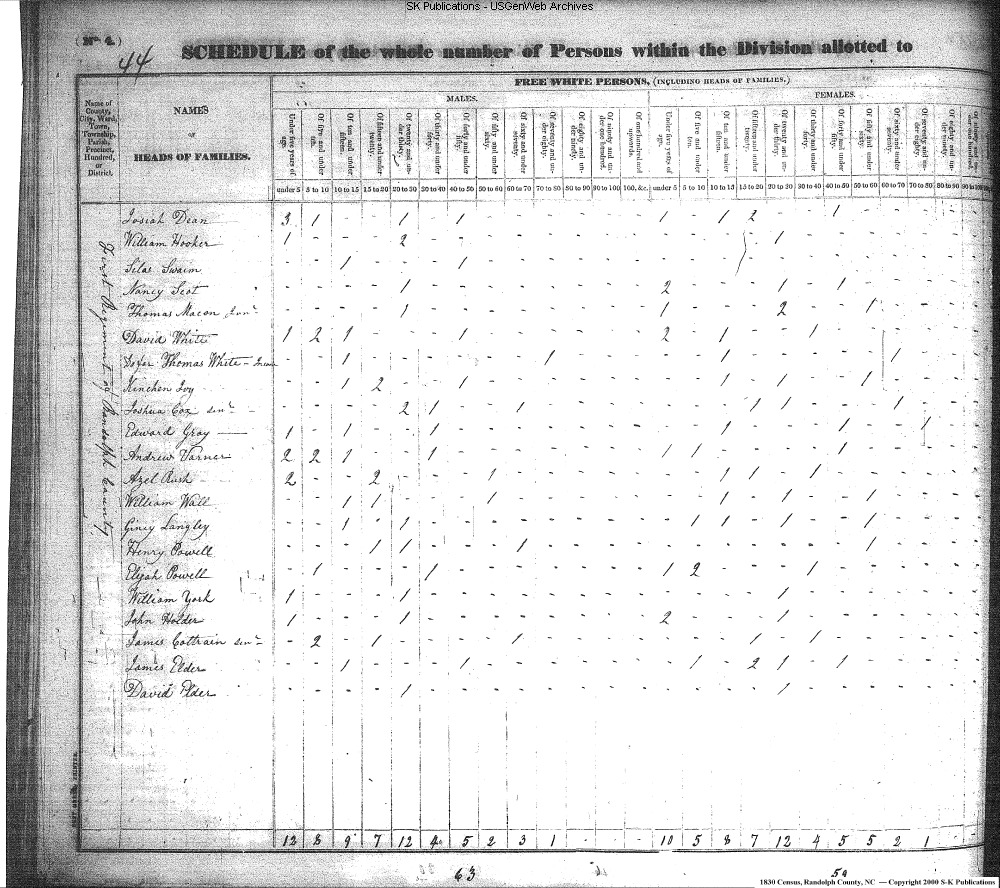 SK Publications - USGenWeb Archives
(No. 4.)
44
SCHEDULE of the whole number of Persons within the Division allotted to
Name of County, City, Ward, Town, Township, Parish, Precinct, Hundred, or District.
NAMES
OF
HEADS OF FAMILIES.
FREE WHITE PERSONS, (INCLUDING HEADS OF FAMILIES.)
MALES.
FEMALES.
under 5 5 to 10 10 to 15 15 to 20 20 to 30 30 to 40 40 to 50 50 to 60 60 to 70 70 to 80 80 to 90 90 to 100 100, &c. under 5 5 to 10 10 to 15 15 to 20 20 to 30 30 to 40 40 to 50 50 to 60 60 to 70 70 to 80 80 to 90
First Regiment of Randolph County
Josiah Dean 3 1 - - 1 - 1 - - - - - - 1 - 1 2 - - 1 - - - -
William Hooker 1 - - - 2 - - - - - - - - - - - - 1 - - - - - -
Silas Swaim - - 1 - - - 1 - - - - - - - - - - - - - - - - -
Nancy Scot - - - - 1 - - - - - - - - 2 - - - 1 - 1 - - - -
Thomas Macon - - - - 1 - - - - - - - - 1 - - - 2 - - 1 - - -
David White 1 2 1 - - - 1 - - - - - - 2 - 1 - - 1 - - - - -
Thomas White - - 1 - - - - - - 1 - - - - - 1 - - - - - 1 - -
Kinchen Ivy - - 1 2 - - 1 - - - - - - - - 1 - 1 - - 1 - - -
Joshua Cox senr - - - - 2 1 - - 1 - - - - - - - 1 1 - - - 1 - -
Edward Gray 1 - 1 - - 1 - - - - - - - - - 1 - - - 1 - - 1 -
Andrew Varner 2 2 1 - - 1 - - - - - - - 1 1 - - - - 1 - - - -
Azel Rush 2 - - 2 - - - 1 - - - - - - - 1 1 - 1 - - - - -
William Wall - - 1 1 - - - 1 - - - - - - - 1 - 1 - - 1 - - -
Langley - - 1 - 1 - - - - - - - - - 1 1 - 1 - - 1 - - -
Henry Powell - - - 1 1 - - - 1 - - - - - - - - - - - 1 - - -
Elijah Powell - 1 - - - 1 - - - - - - - 1 2 - - - 1 - - - - -
William York 1 - - - 1 - - - - - - - - - - - - 1 - - - - - -
John Holder 1 - - - 1 - - - - - - - - 2 - - - 1 - - - - - -
James Cottrain senr - 2 - 1 - - - - 1 - - - - - - - 1 - 1 - - - - -
James Elder - - 1 - - - 1 - - - - - - - 1 - 2 1 - 1 - - - -
David Elder - - - - 1 - - - - - - - - - - - - 1 - - - - - -
12 8 9 7 12 4 5 2 3 1 - - - 10 5 8 7 12 4 5 5 2 1 -
63 59
1830 Census, Randolph County, NC — Copyright 2000 S-K Publications